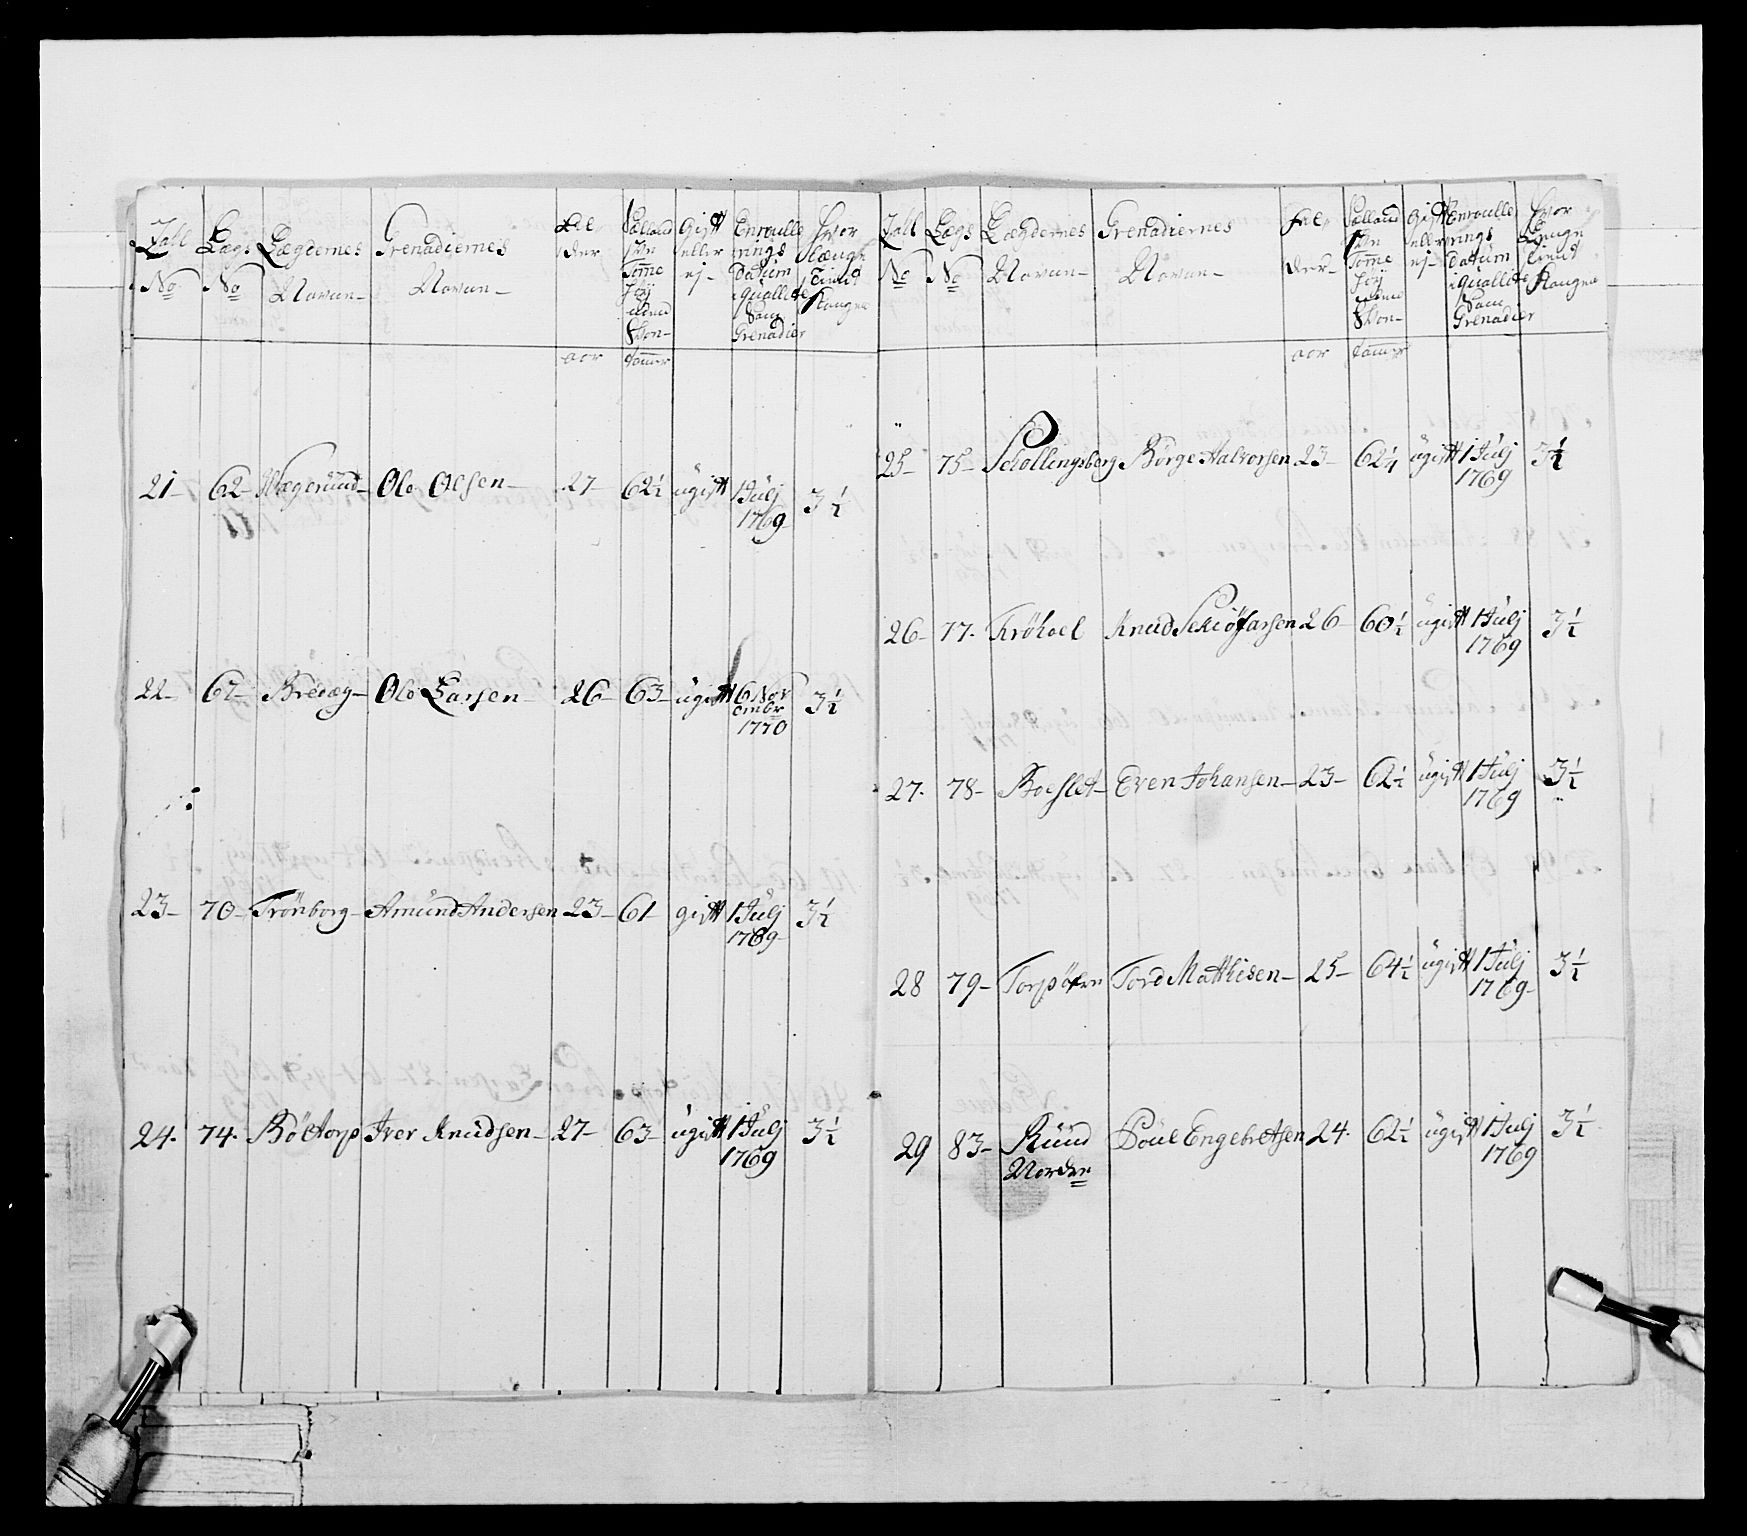 Tall No | Lægs No | Lægdernes Navne | Grenadiernes Navne | Al der | Gift eller ej | Enroulle rings Datum Quallite Som Grenadier | Hvor Længe tient Kongen
aar | tommer
21 62 Ole Olsen 27 62½ ugift 1 Julj 1769 3½
22 67 Ole Larsen 26 63 ugift 6 November 1770 3½
23 70 Trönborg Amund Andersen 23 61 gift 1 Julj 1769 3½
24. 74. Böttorp Iver Knudsen 27 63 ugift 1 Julj 1769 3½
Tall No | Lægs No | Lægdernes Navne | Grenadiernes Navne | Al der | Gift eller ej | Enroulle rings Datum Quallite Som Grenadier | Hvor Længe tient Kongen
aar | tommer
25 75 Schollingsberg Börge Halvorsen 23 62¼ ugift 1 Julj 1769 3½
26 77. Knud 26 60½ ugift 1 Julj 1769 3½
27. 78 Boeslet Even Johansen 23 62½ ugift 1 Julj 1769 3½
28 79 Tord Matthisen 25 64½ ugift 1 Julj 1769 3½
29 83 Ruud Nordre Poul Engebretsen 24. 62½ ugift 1 Julj 1769 3½